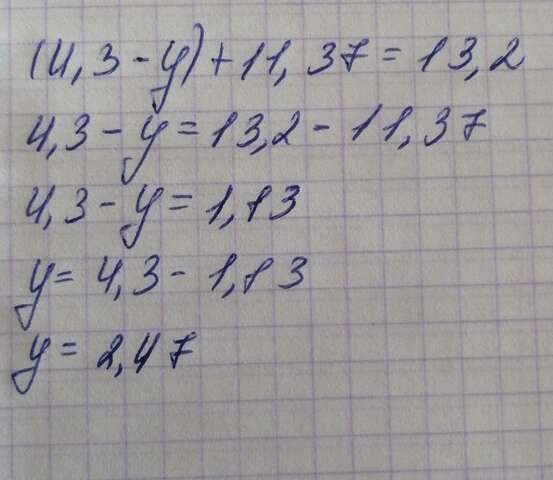 (4,3-y)+11,37=13,2
4,3-y=13,2-11,37
4,3-y=1,83
y=4,3-1,83
y=2,47